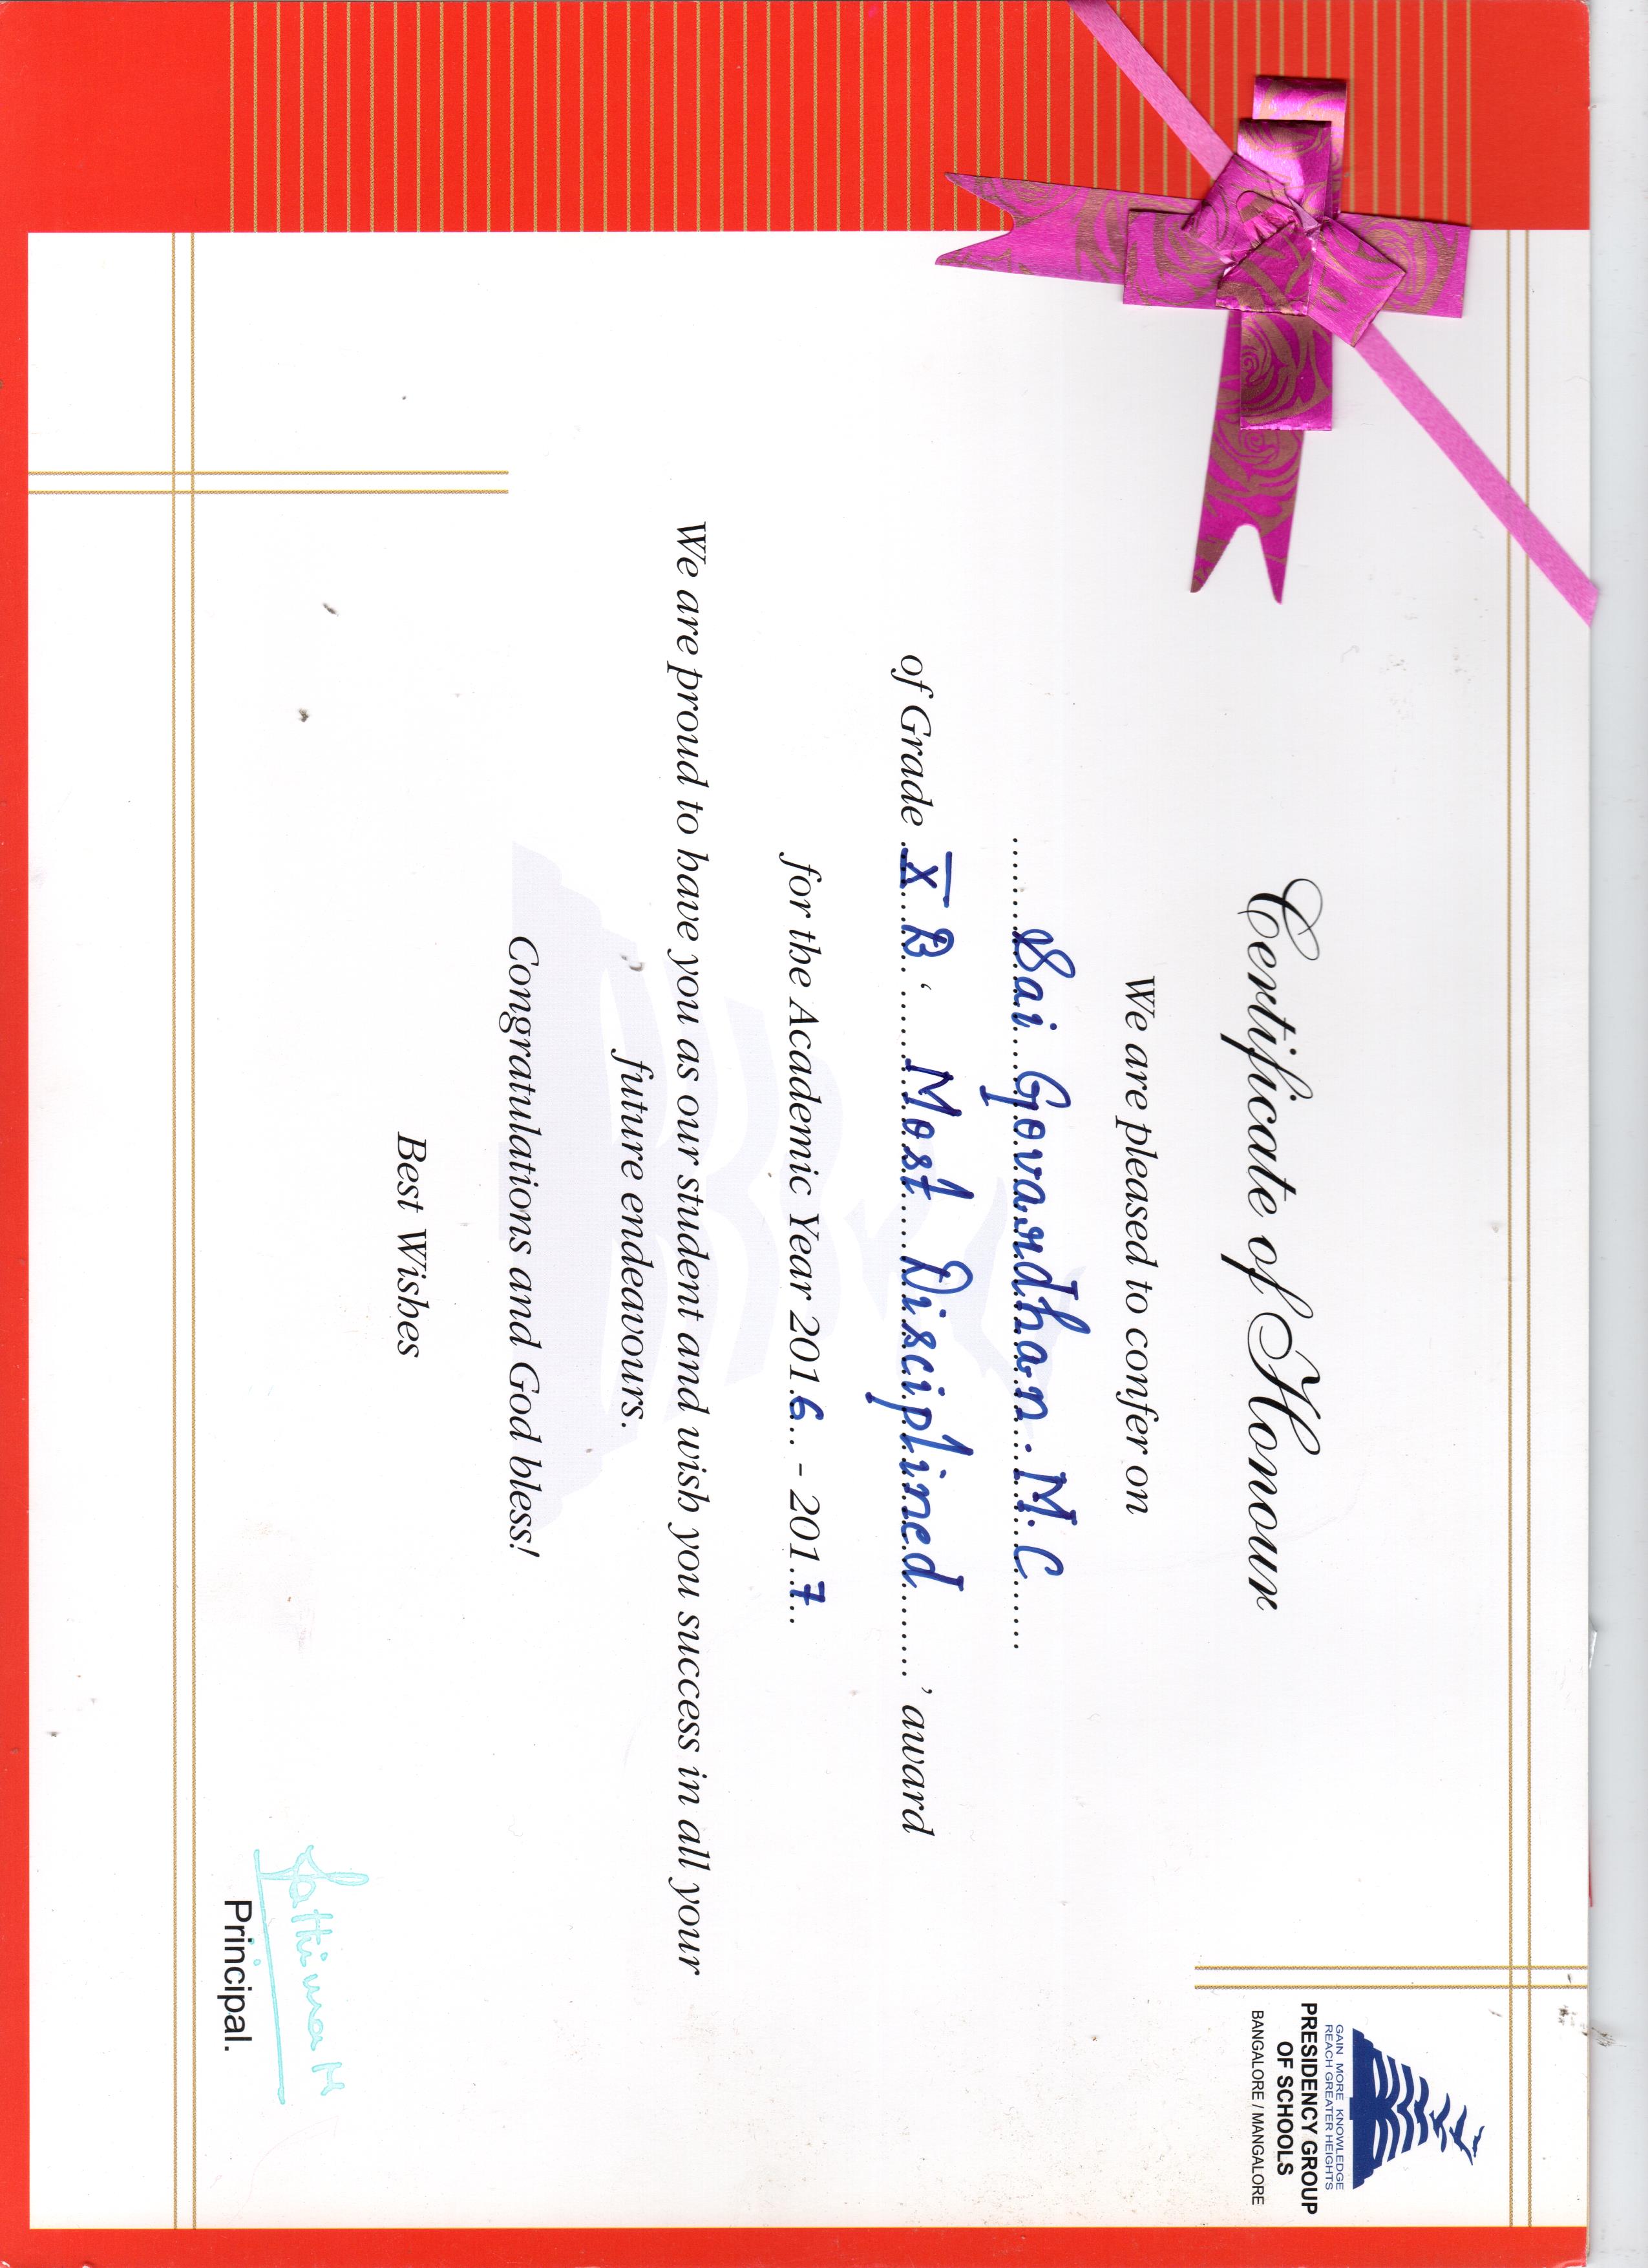 GAIN MORE KNOWLEDGE
REACH GREATER HEIGHTS
PRESIDENCY GROUP
OF SCHOOLS
BANGALORE / MANGALORE
Certificate of Honour
We are pleased to confer on
Sai Govardhan. M. C
of Grade X B ‘ Most Disciplined ’ award
for the Academic Year 2016 - 2017
We are proud to have you as our student and wish you success in all your
future endeavours.
Congratulations and God bless!
Best Wishes
fathima M
Principal.